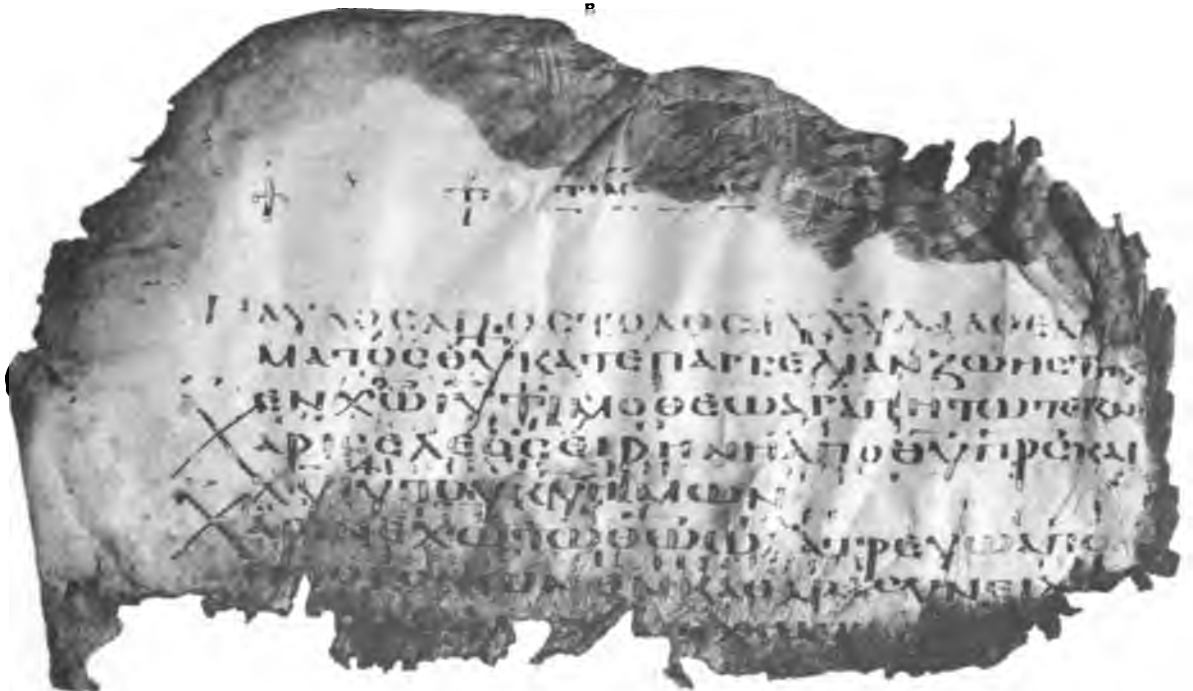 ΑΥΛΟϹΑΠΟϹΤΟΛΟϹΙΥΧΥΔΙΑΘΕΛΗ
ΜΑΤΟϹΘΥΚΑΤΕΠΑΓΓΕΛΙΑΝΖΩΗϹΤΗϹ
ΕΝΧΩΙΥΤΙΜΟΘΕΩΑΓΑΠΗΤΩΤΕΚΝ
ΑΡΙϹΕΛΕΟϹΕΙΡΗΝΗΑΠΟΘΥΠΡϹΚΑΙ
ΧΥΙΥΤΟΥΚΥΗΜΩΝ
ΑΡΙΝΕΧΩΤΩΘΩΩΛΑΤΡΕΥΩΑΠΟ
ΕΝΚΑΘΑΡΑϹΥΝΕΙΔ